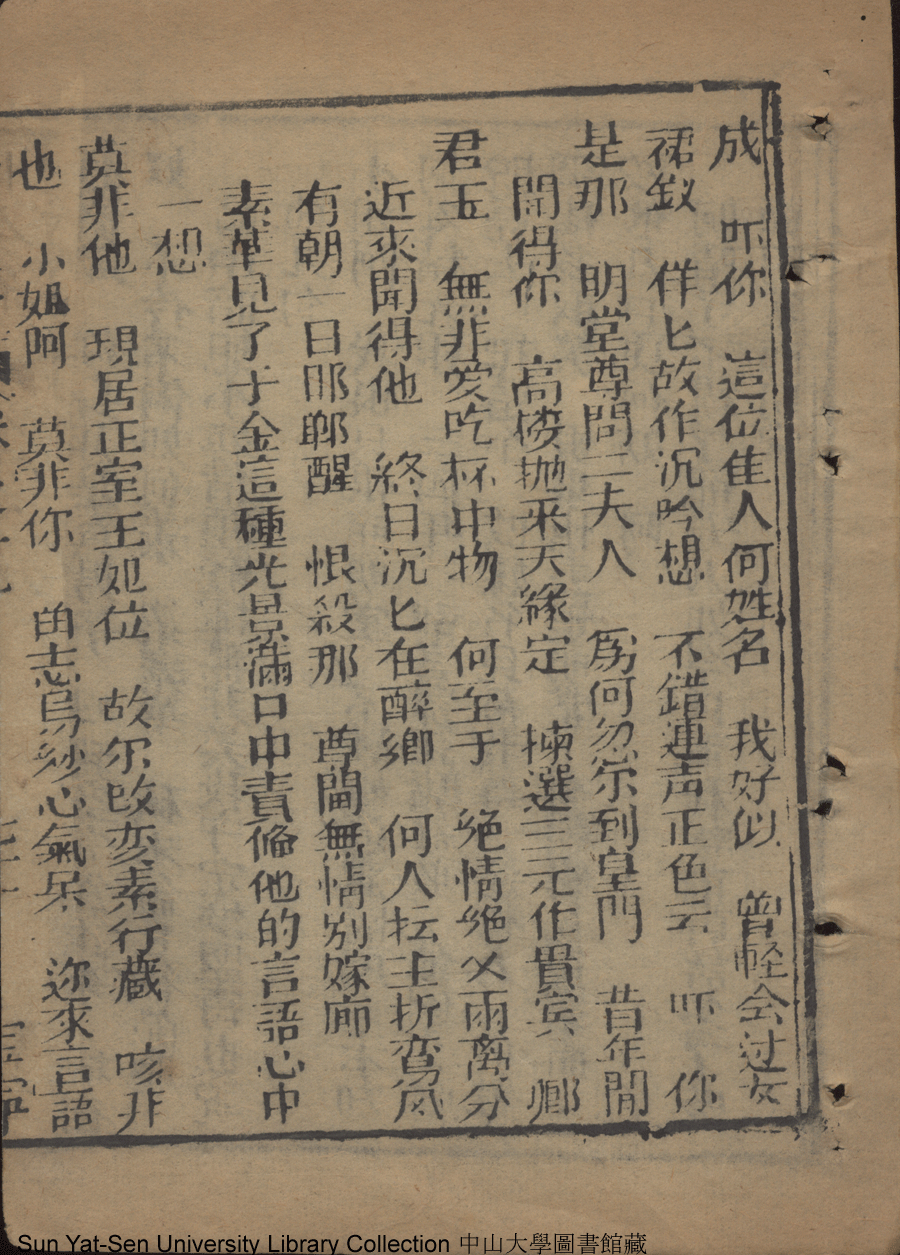 成　吓你　這位隹人何姓名　我好似　曾軽会过女
裙釵　佯匕故作沉吟想　不錯連声正色云　吓　你
是那　明堂尊問二夫人　為何忽尔到皇門　昔年聞
聞得你　高楼抛来天緣定　揀選三元作貴宾　鄉
君玉　無非爱吃杯中物　何至于　绝情绝义兩离分
近來聞得他　終日沉匕在醉鄉　何人抎主折鸾凤
有朝一日邯鄲醒　恨殺那　尊閫無情别嫁廊
素華見了千金這種光景滿口中責俻他的言語心中
一想
莫非他　現居正室王妃位　故尔改变素行藏　咳非
也　小姐呵　莫非你　的志昜纱心氣呆　迩來言語
Sun Yat-Sen University Library Collection 中山大學圖書館藏